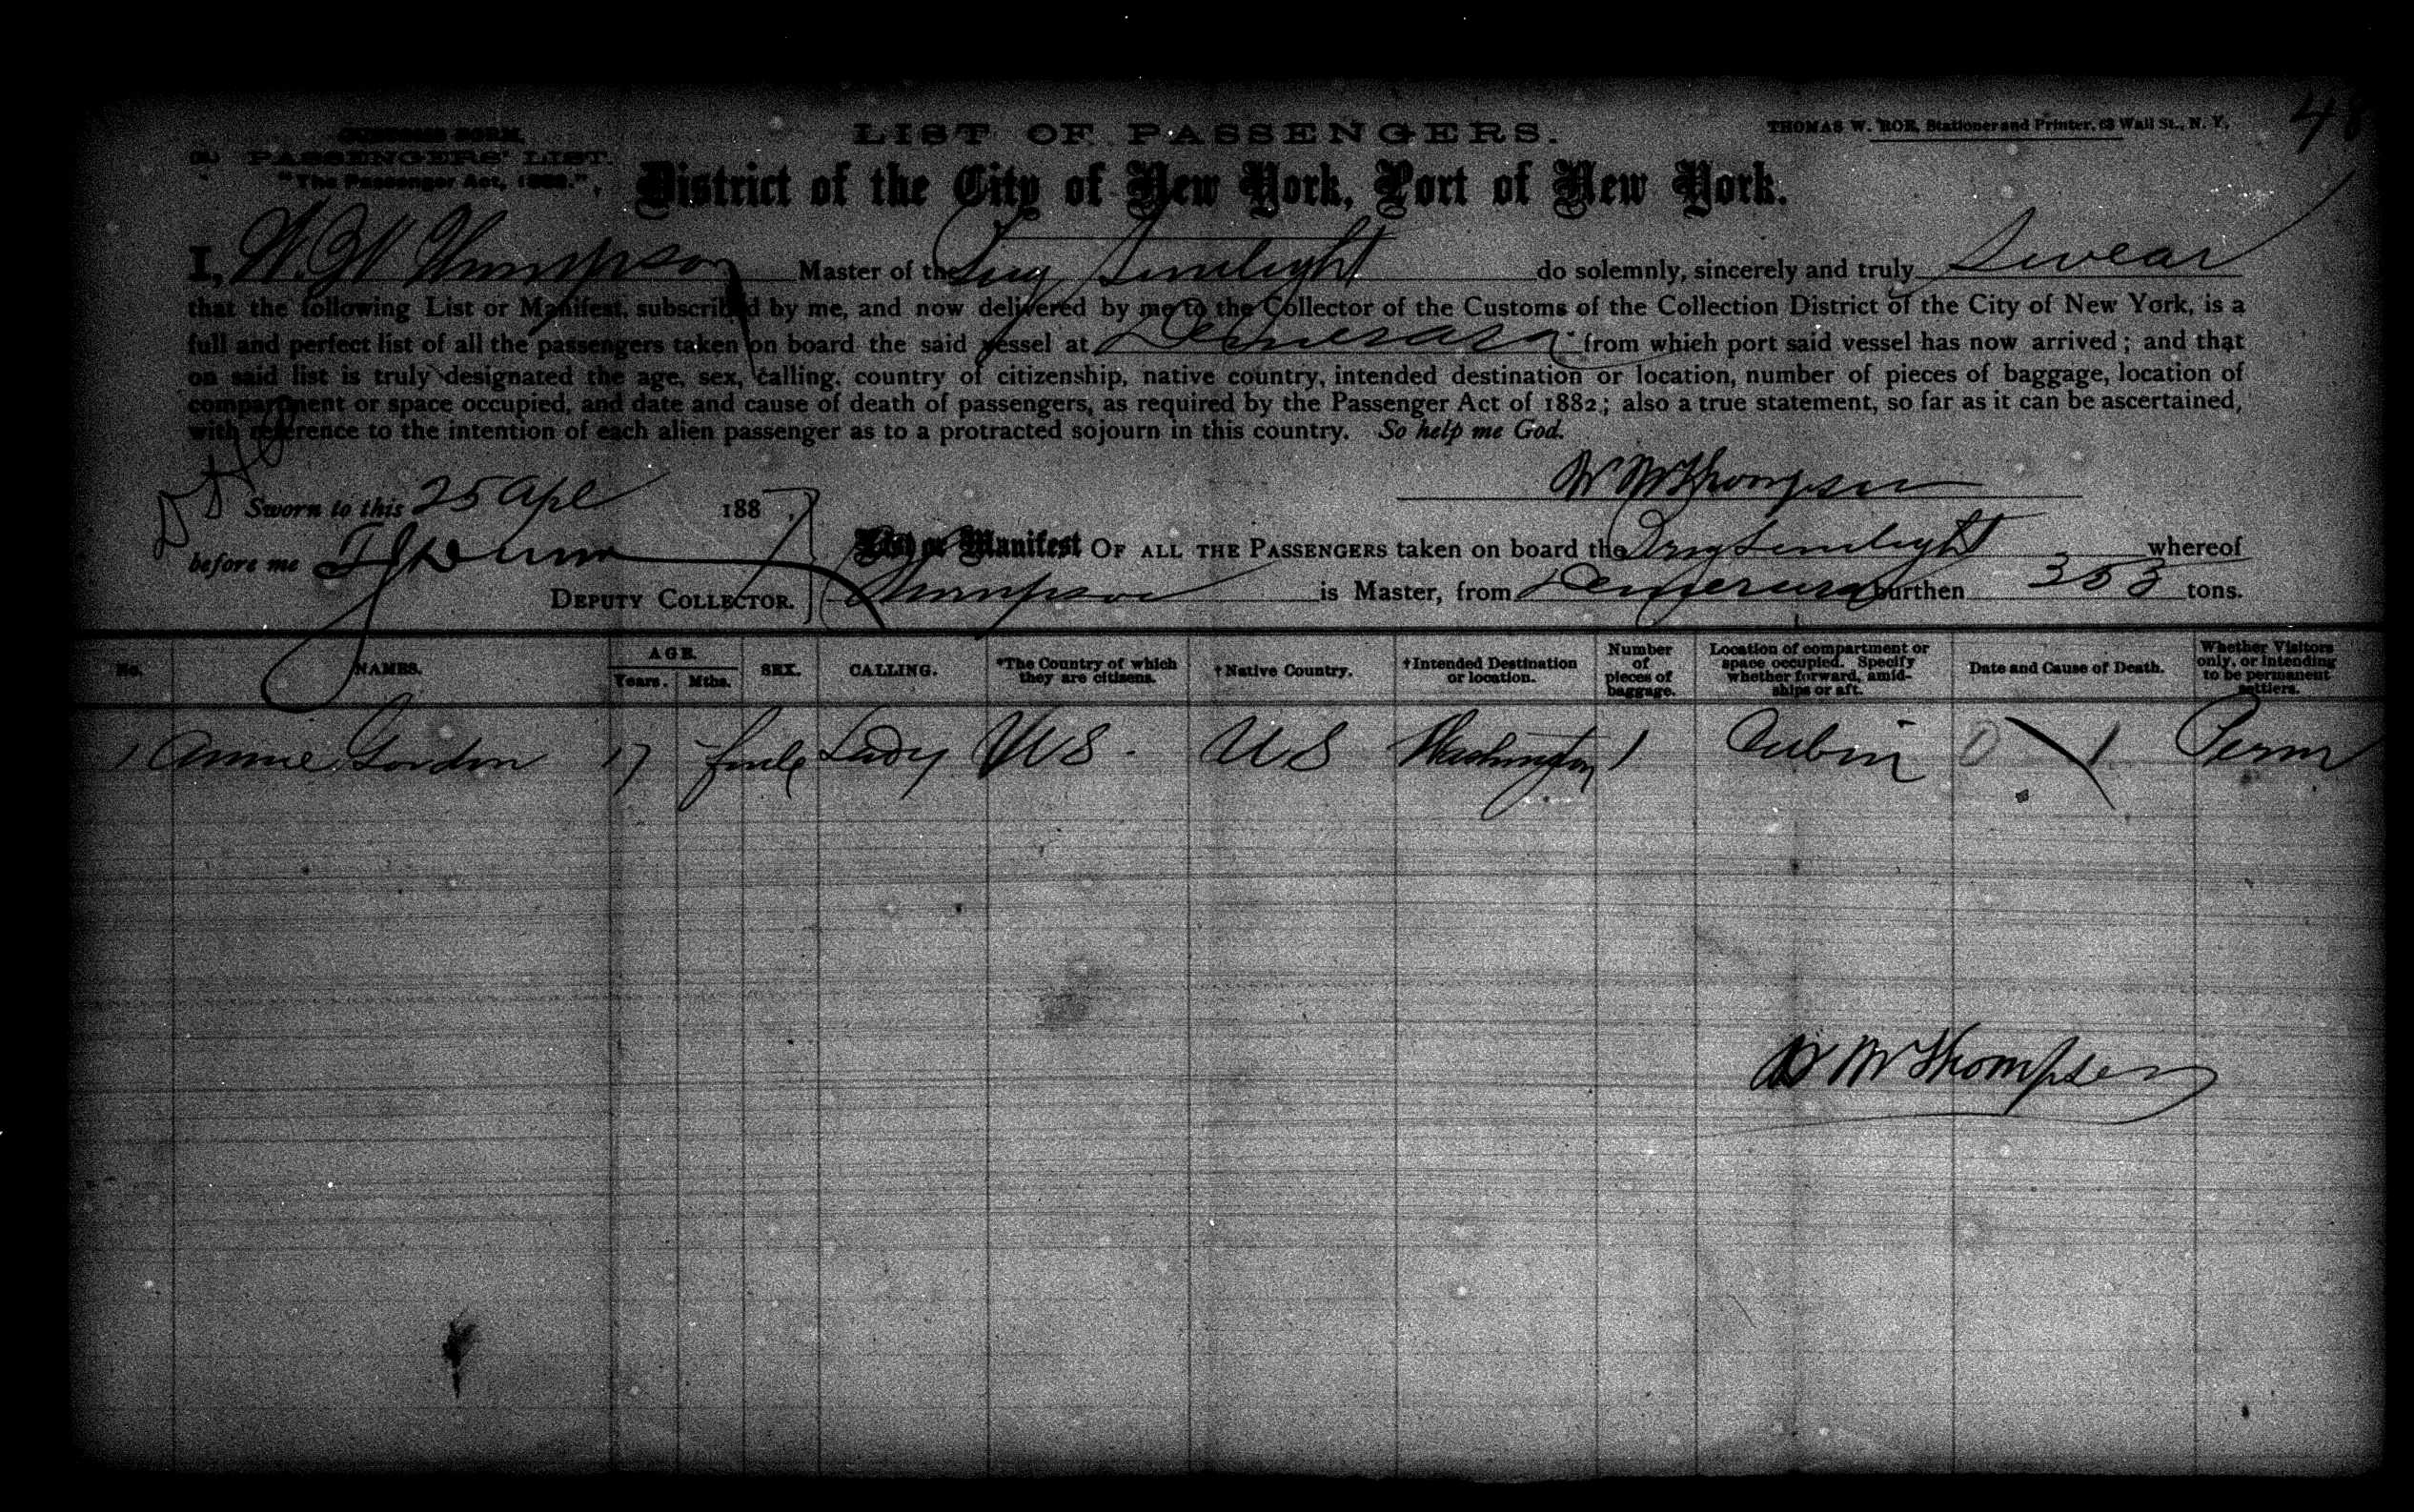 48
CUSTOMS FORM.
PASSENGERS' LIST.
"The Passenger Act, 1882."
LIST OF PASSENGERS.
THOMAS W. ROE, Stationer and Printer, 63 Wall St., N. Y.
District of the City of New York, Port of New York.
I, W. W. Thompson Master of the Brig Sunlight do solemnly, sincerely and truly Swear
that the following List or Manifest, subscribed by me, and now delivered by me to the Collector of the Customs of the Collection District of the City of New York, is a
full and perfect list of all the passengers taken on board the said vessel at Demerara from which port said vessel has now arrived; and that
on said list is truly designated the age, sex, calling, country of citizenship, native country, intended destination or location, number of pieces of baggage, location of
compartment or space occupied, and date and cause of death of passengers, as required by the Passenger Act of 1882; also a true statement, so far as it can be ascertained,
with reference to the intention of each alien passenger as to a protracted sojourn in this country. So help me God.
W W Thompson
Sworn to this 25 Apl 1887.
before me
DEPUTY COLLECTOR.
List or Manifest OF ALL THE PASSENGERS taken on board the Brig Sunlight whereof
Thompson is Master, from Demerara burthen 353 tons.
No. NAMES. AGE. Years. Mths. SEX. CALLING. *The Country of which they are citizens. †Native Country. †Intended Destination or location. Number of pieces of baggage. Location of compartment or space occupied. Specify whether forward, amidships or aft. Date and Cause of Death. Whether Visitors only, or intending to be permanent settlers.
1 Annie Gordon 17 fmle Lady US. US Washington 1 Cabin Perm
W W Thompson